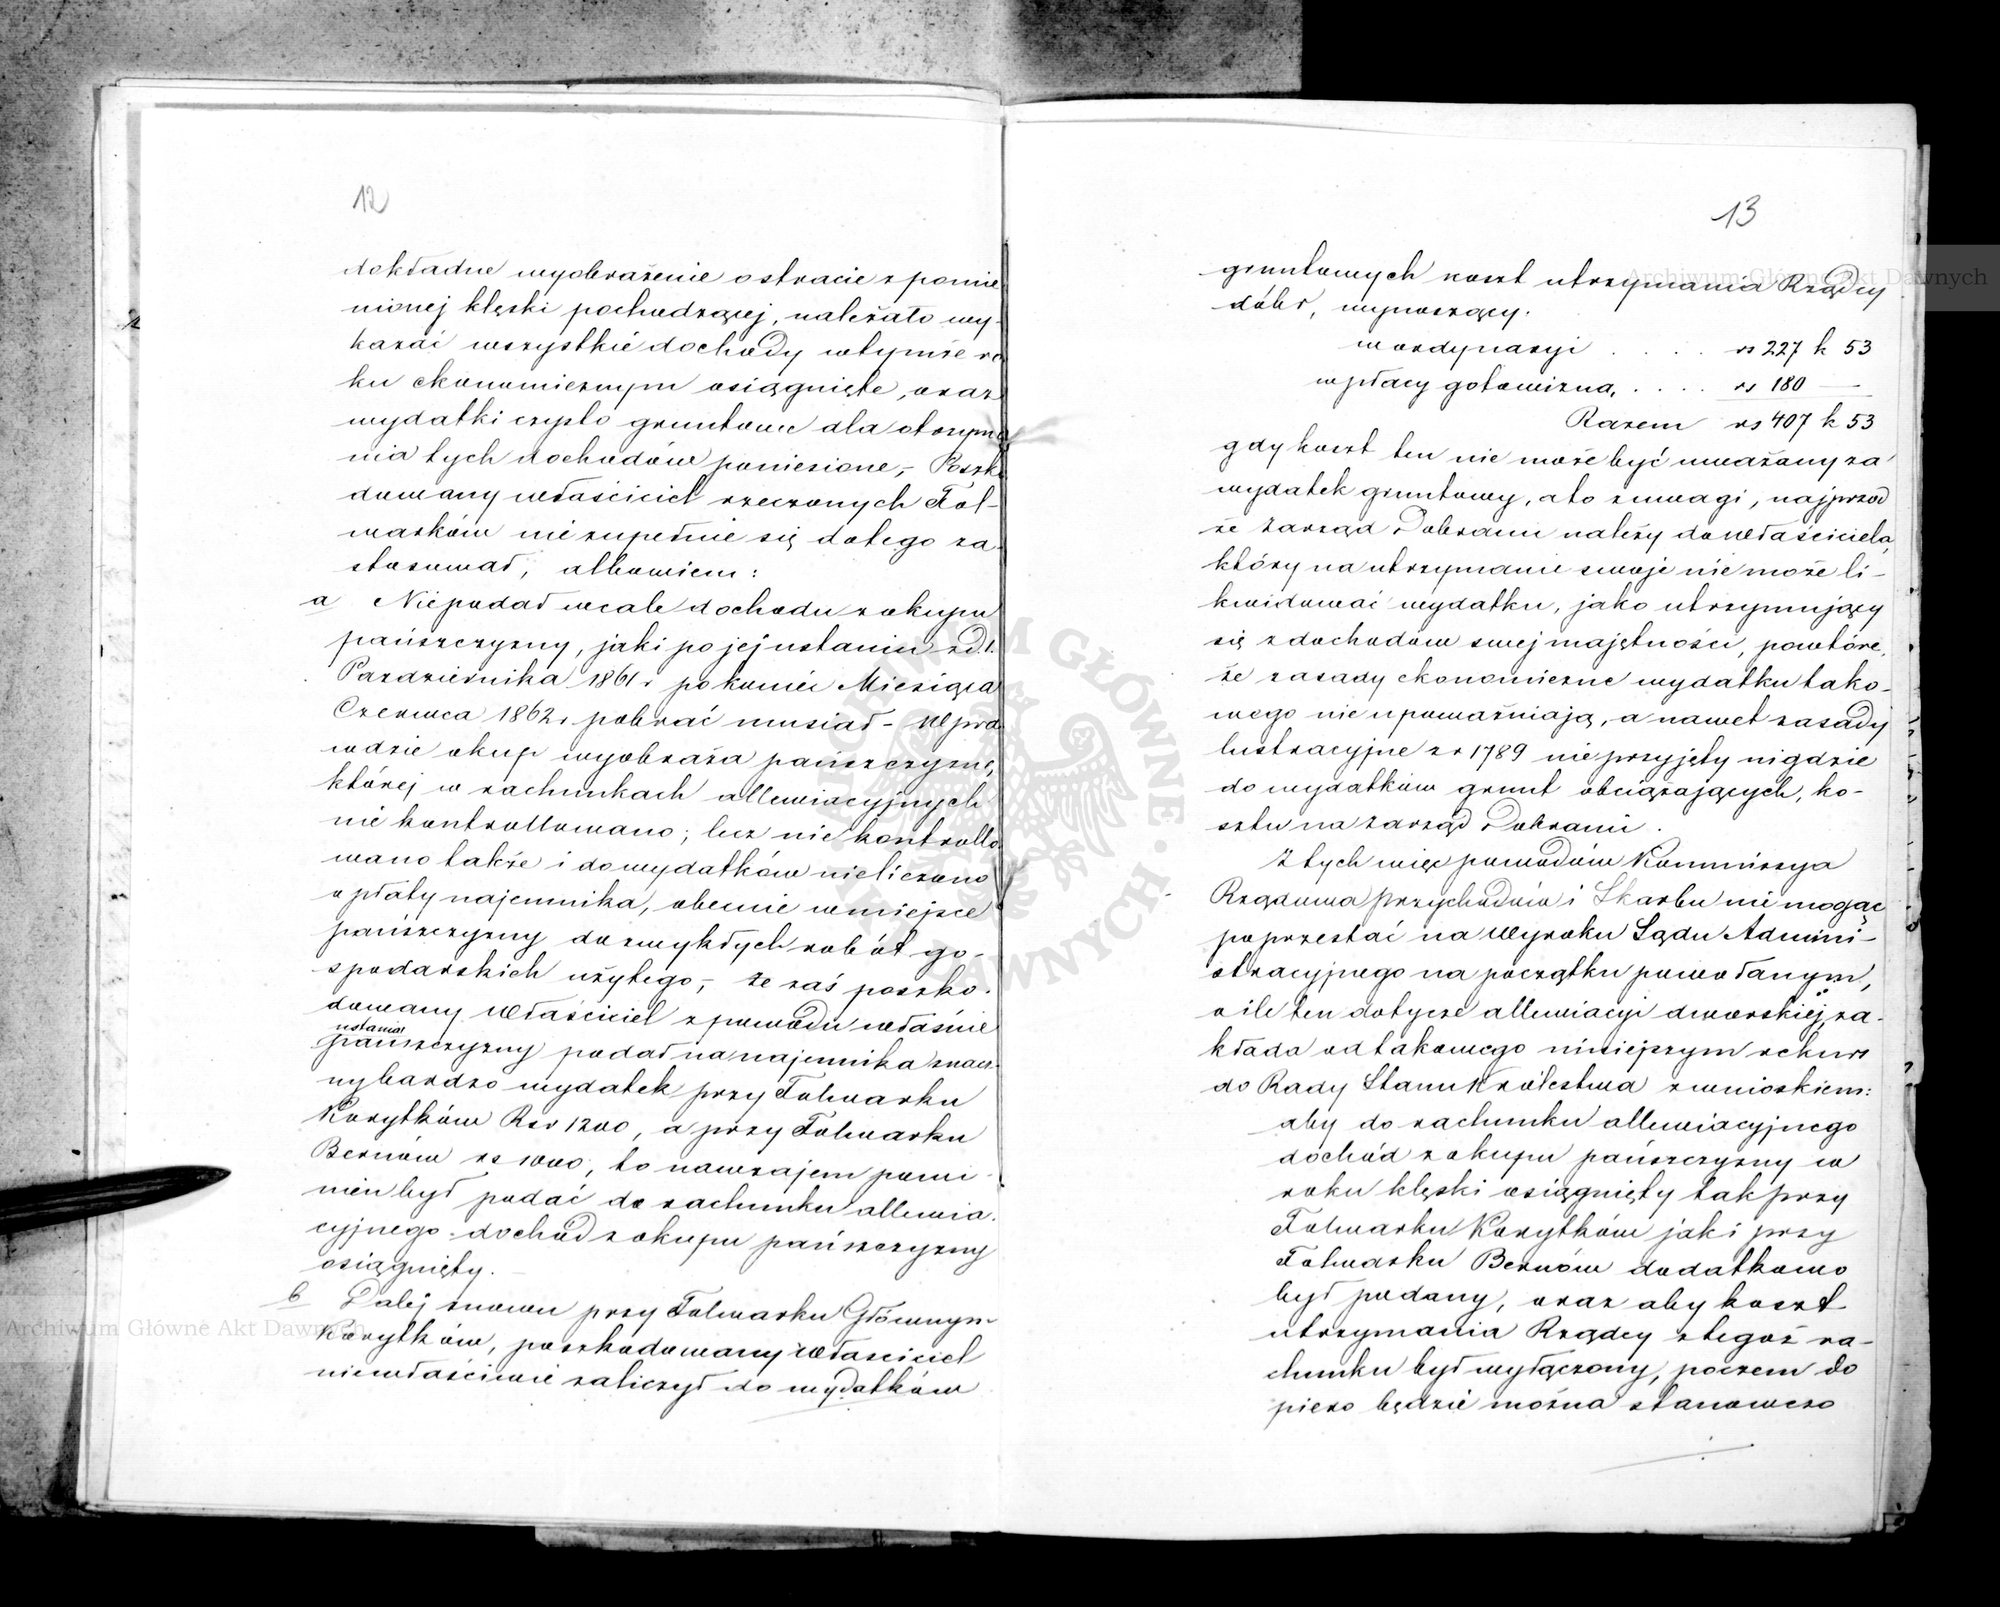 12
dokładne wyobrażenie o stracie z pomie
nionej klęski pochodzącej, należało wy-
kazać wszystkie dochody w tymże ro
ku ekonomicznym osiągnięte, oraz
wydatki czysto gruntowe dla otrzyma
nia tych dochodów poniesione, – Poszko
dowany właściciel rzeczonych Fol-
warków nie zupełnie się do tego za
stosował, albowiem:
a Nie podał wcale dochodu z okupu
pańszczyzny, jaki po jej ustaniu z d. 1.
Pazdziernika 1861 r. po koniec Miesiąca
Czerwca 1862 r. pobrać musiał – Wpra
wdzie okup wyobraża pańszczyznę,
której w rachunkach allewiacyjnych
nie kontrollowano; lecz nie kontrollo
wano także i do wydatków nieliczono
opłaty najemnika, obecnie w miejsce
pańszczyzny do zwykłych robót go-
spodarskich użytego, – że zaś poszko-
dowany Właściciel z powodu właśnie
ustania
pańszczyzny podał na najemnika znacz-
ny bardzo wydatek przy Folwarku
Korytków Rsr 1200, a przy Folwarku
Bernów rs 1000, to nawzajem powi-
nien był podać do rachunku allewia-
cyjnego dochód z okupu pańszczyzny
osiągnięty. –
b Dalej znowu przy Folwarku Głównym
Korytków, poszkodowany Właściciel
niewłaściwie zaliczył do wydatków
13
gruntowych koszt utrzymania Rządcy
dóbr, wynoszący.
w ordynaryi . . . . rs 227 k 53
w płacy gotowizną, . . . . rs 180 —
Razem rs 407 k 53
gdy koszt ten nie może być uważany za
wydatek gruntowy, a to z uwagi, najprzod
że Zarząd Dobrami należy do Właściciela,
który na utrzymanie swoje nie może li-
kwidować wydatku, jako utrzymujący
się z dochodów swej majętności, powtóre,
że zasady ekonomiczne wydatku tako-
wego nie upoważniają, a nawet zasady
lustracyjne z r 1789 nie przyjęty nigdzie
do wydatków grunt obciążających, ko-
sztu na Zarząd Dobrami.
Z tych więc powodów Kommissya
Rządowa Przychodów i Skarbu nie mogąc
poprzestać na Wyroku Sądu Admini-
stracyjnego na początku powołanym,
o ile ten dotycze allewiacyi dworskiej, za-
kłada od takowego niniejszym rekurs
do Rady Stanu Królestwa z wnioskiem:
aby do rachunku allewiacyjnego
dochód z okupu pańszczyzny w
roku klęski osiągnięty tak przy
Folwarku Korytków jak i przy
Folwarku Bernów dodatkowo
był podany, oraz aby koszt
utrzymania Rządcy z tegoż ra-
chunku był wyłączony, poczem do
piero będzie można stanowczo
Archiwum Główne Akt Dawnych
Archiwum Główne Akt Dawnych
ARCHIWUM GŁÓWNE AKT DAWNYCH